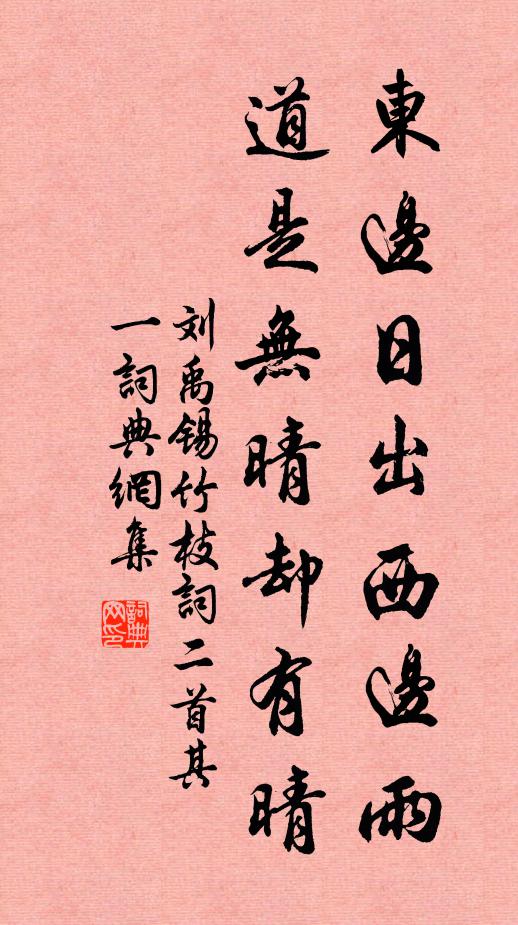 東邊日出西邊雨
道是無晴却有晴
刘禹锡竹枝詞二首其
一詞典網集
詞典
网印